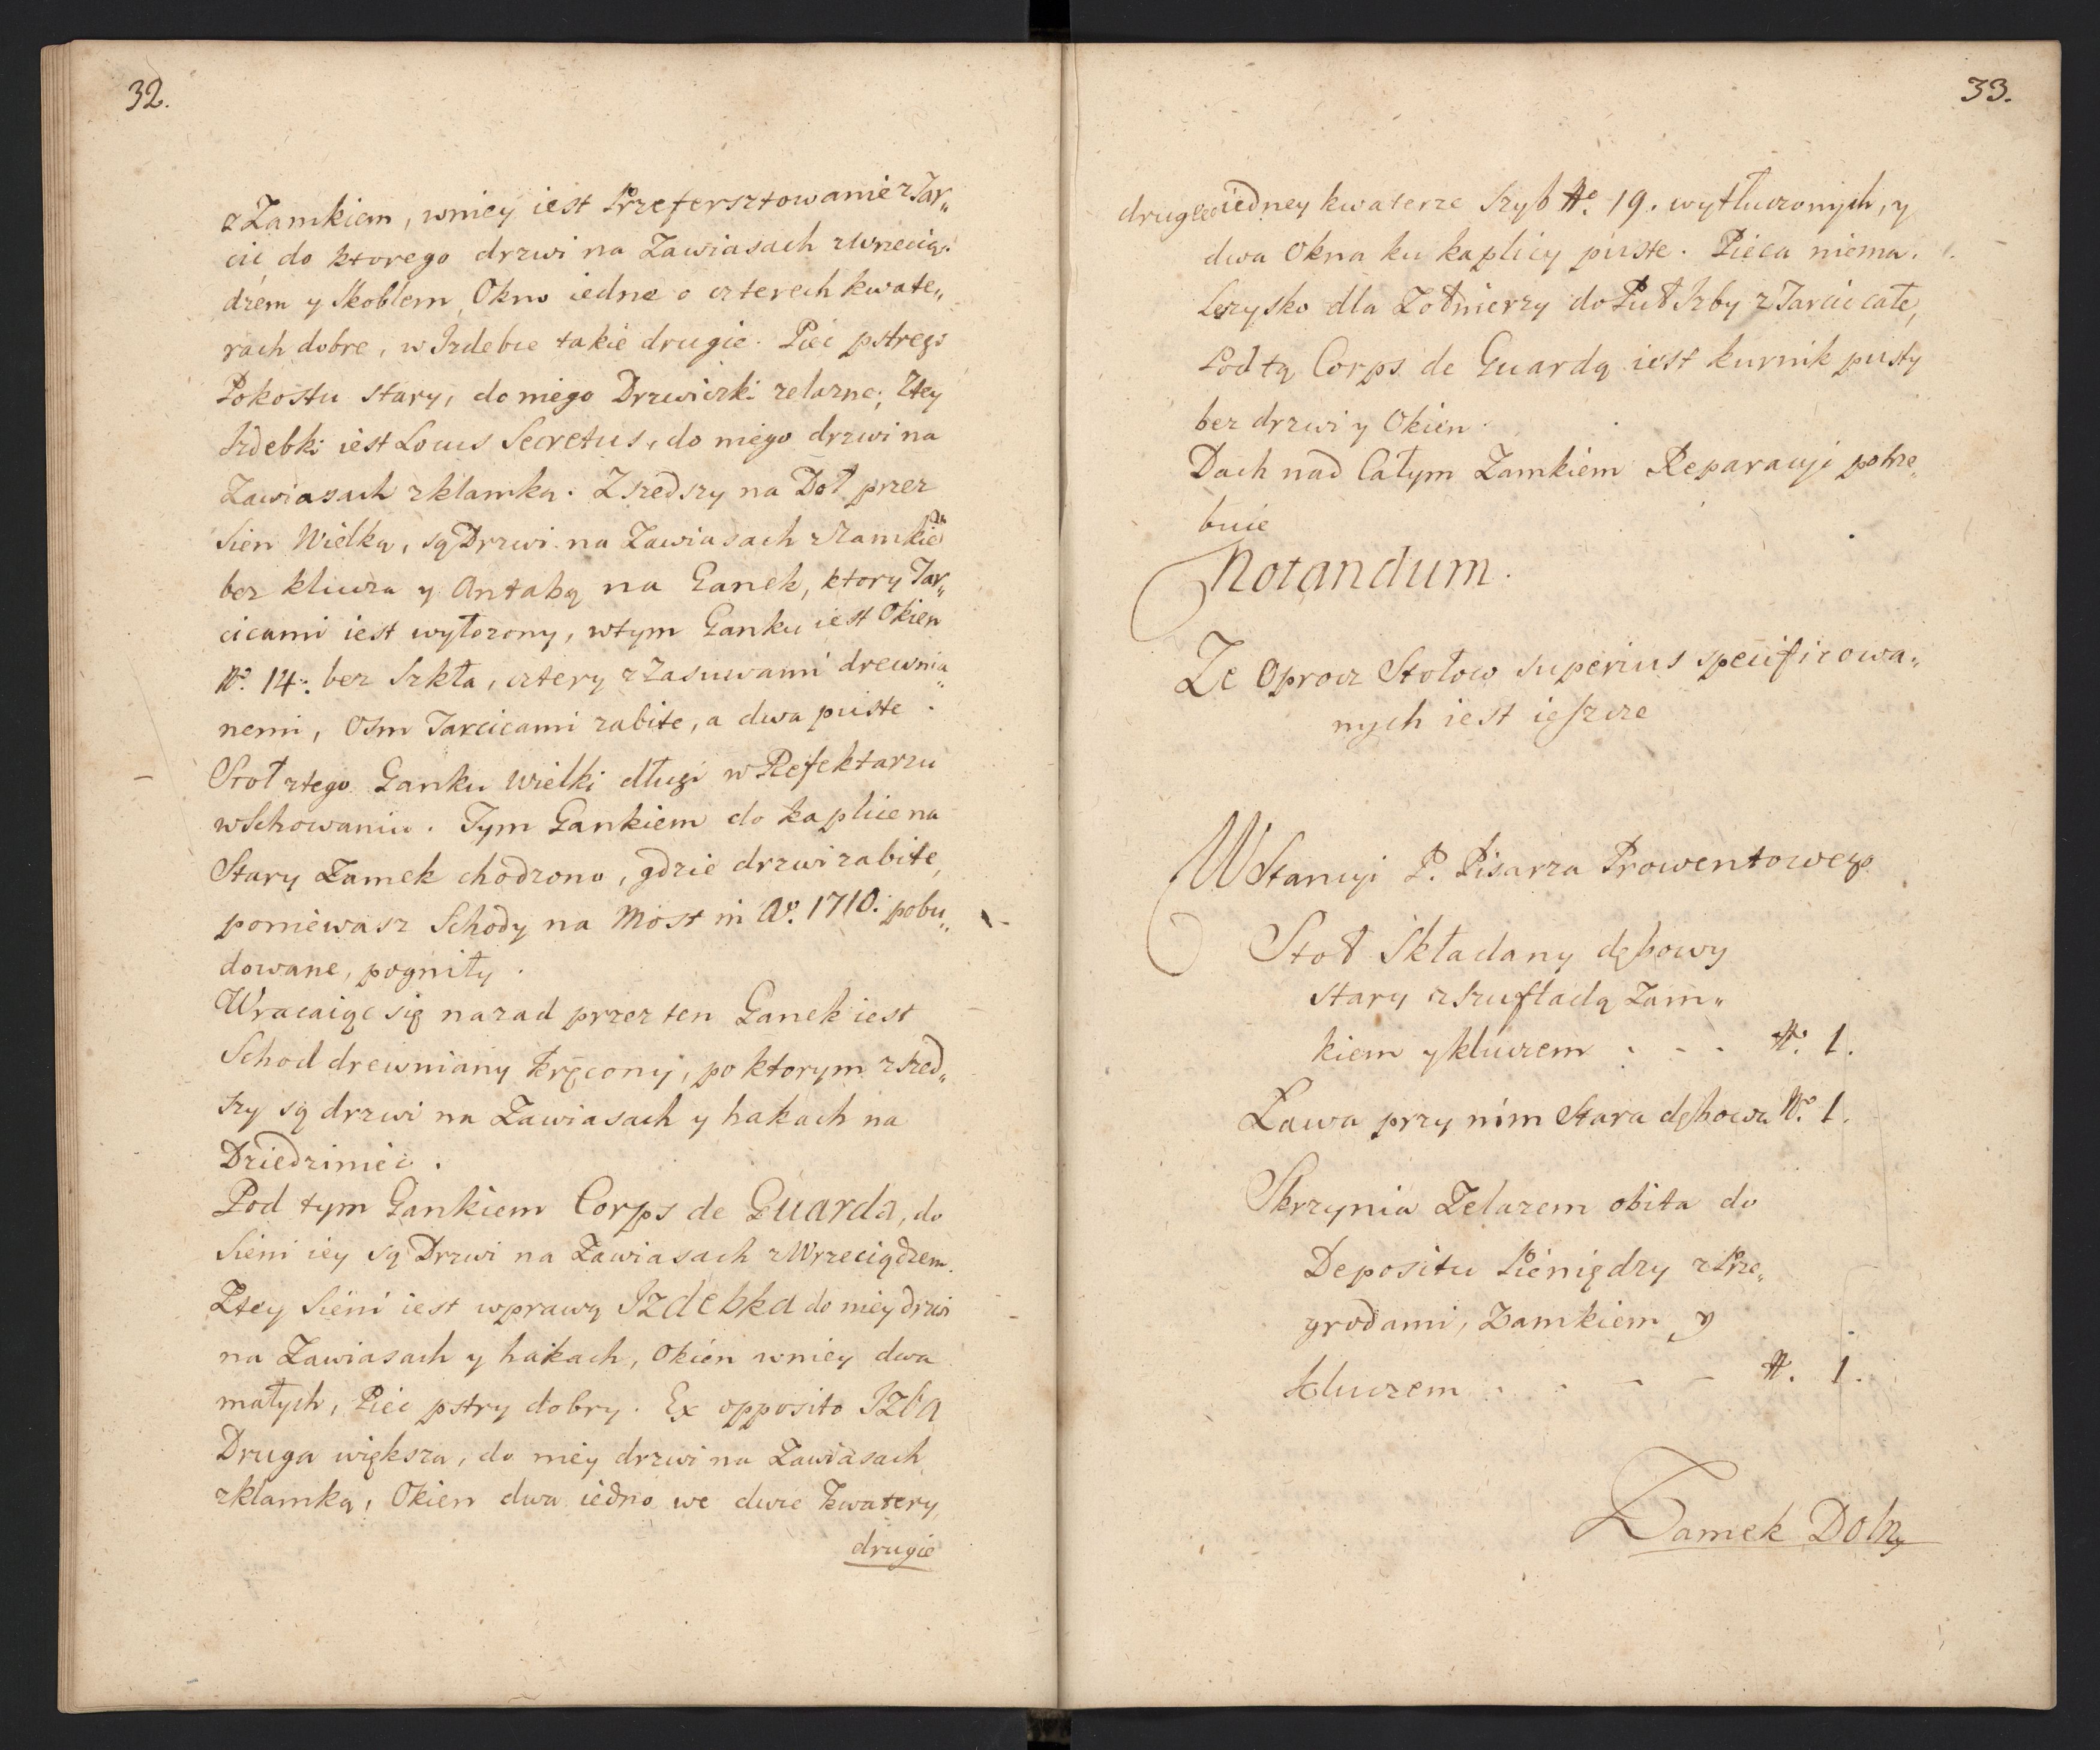 32.
z Zamkiem, wniey iest Przefersztowanie z Tar„
cic do ktorego drzwi na Zawiasach z Wrzecią„
dzem y Skoblem, Okno iedne o czterech kwate„
rach dobre, w Izdebce takie drugie. Piec pstrego
Pokostu stary, do niego Drzwiczki zelazne; Ztey
Izdebki iest Locus Secretus, do niego drzwi na
Zawiasach z klamką. Zszedszy na Doł przez
Sien Wielką, są Drzwi na Zawiasach z Zamkiē
bez klucza y Antabą na Ganek, ktory Tar„
cicami iest wyłozony, wtym Ganku iest Okien
No. 14. bez Szkła, cztery z Zasuwami drewnia„
nemi, Osm Tarcicami zabite, a dwa puste.
Stoł ztego Ganku Wielki długi w Refektarzu
wSchowaniu. Tym Gankiem do kaplice na
Stary Zamek chodzono, gdzie drzwi zabite,
poniewasz Schody na Most in Ao. 1710. pobu„
dowane, pogniły.
Wracaiąc się nazad przez ten Ganek iest
Schod drewniany kręcony, po ktorym zszed„
szy są drzwi na Zawiasach y hakach na
Dziedziniec.
Pod tym Gankiem Corps de Guarda, do
Sieni iey są Drzwi na Zawiasach z Wrzeciądzem.
Ztey Sieni iest wprawą Izdebka do niey drzwi
na Zawiasach y hakach, Okien wniey dwa
małych, Piec pstry dobry. Ex opposito Izba
Druga większa, do niey drzwi na Zawiasach
zklamką, Okien dwa iedno we dwie kwatery,
drugie
33.
drugie wiedney kwaterze Szyb No. 19. wytłuczonych, y
dwa Okna ku kaplicy puste. Pieca niema.
Lezysko dla Zołnierzy do Puł Izby z Tarcic całe,
Pod tą Corps de Guardą iest kurnik pusty
bez drzwi y Okien.
Dach nad Całym Zamkiem Reparacyi potrze„
buie
Notandum.
Ze Oprocz Stołow superius specificowa„
nych iest ieszcze
W Stancyi P. Pisarza Prowentowego
Stoł Składany dębowy
stary z szufladą Zam„
kiem y kluczem . - - . No. 1.
Ława przy nim Stara dębowa No. 1.
Skrzynia Zelazem obita do
Depositu Pieniędzy z Prze„
grodami, Zamkiem y
kluczem . . - - No. 1.
Zamek Dolny